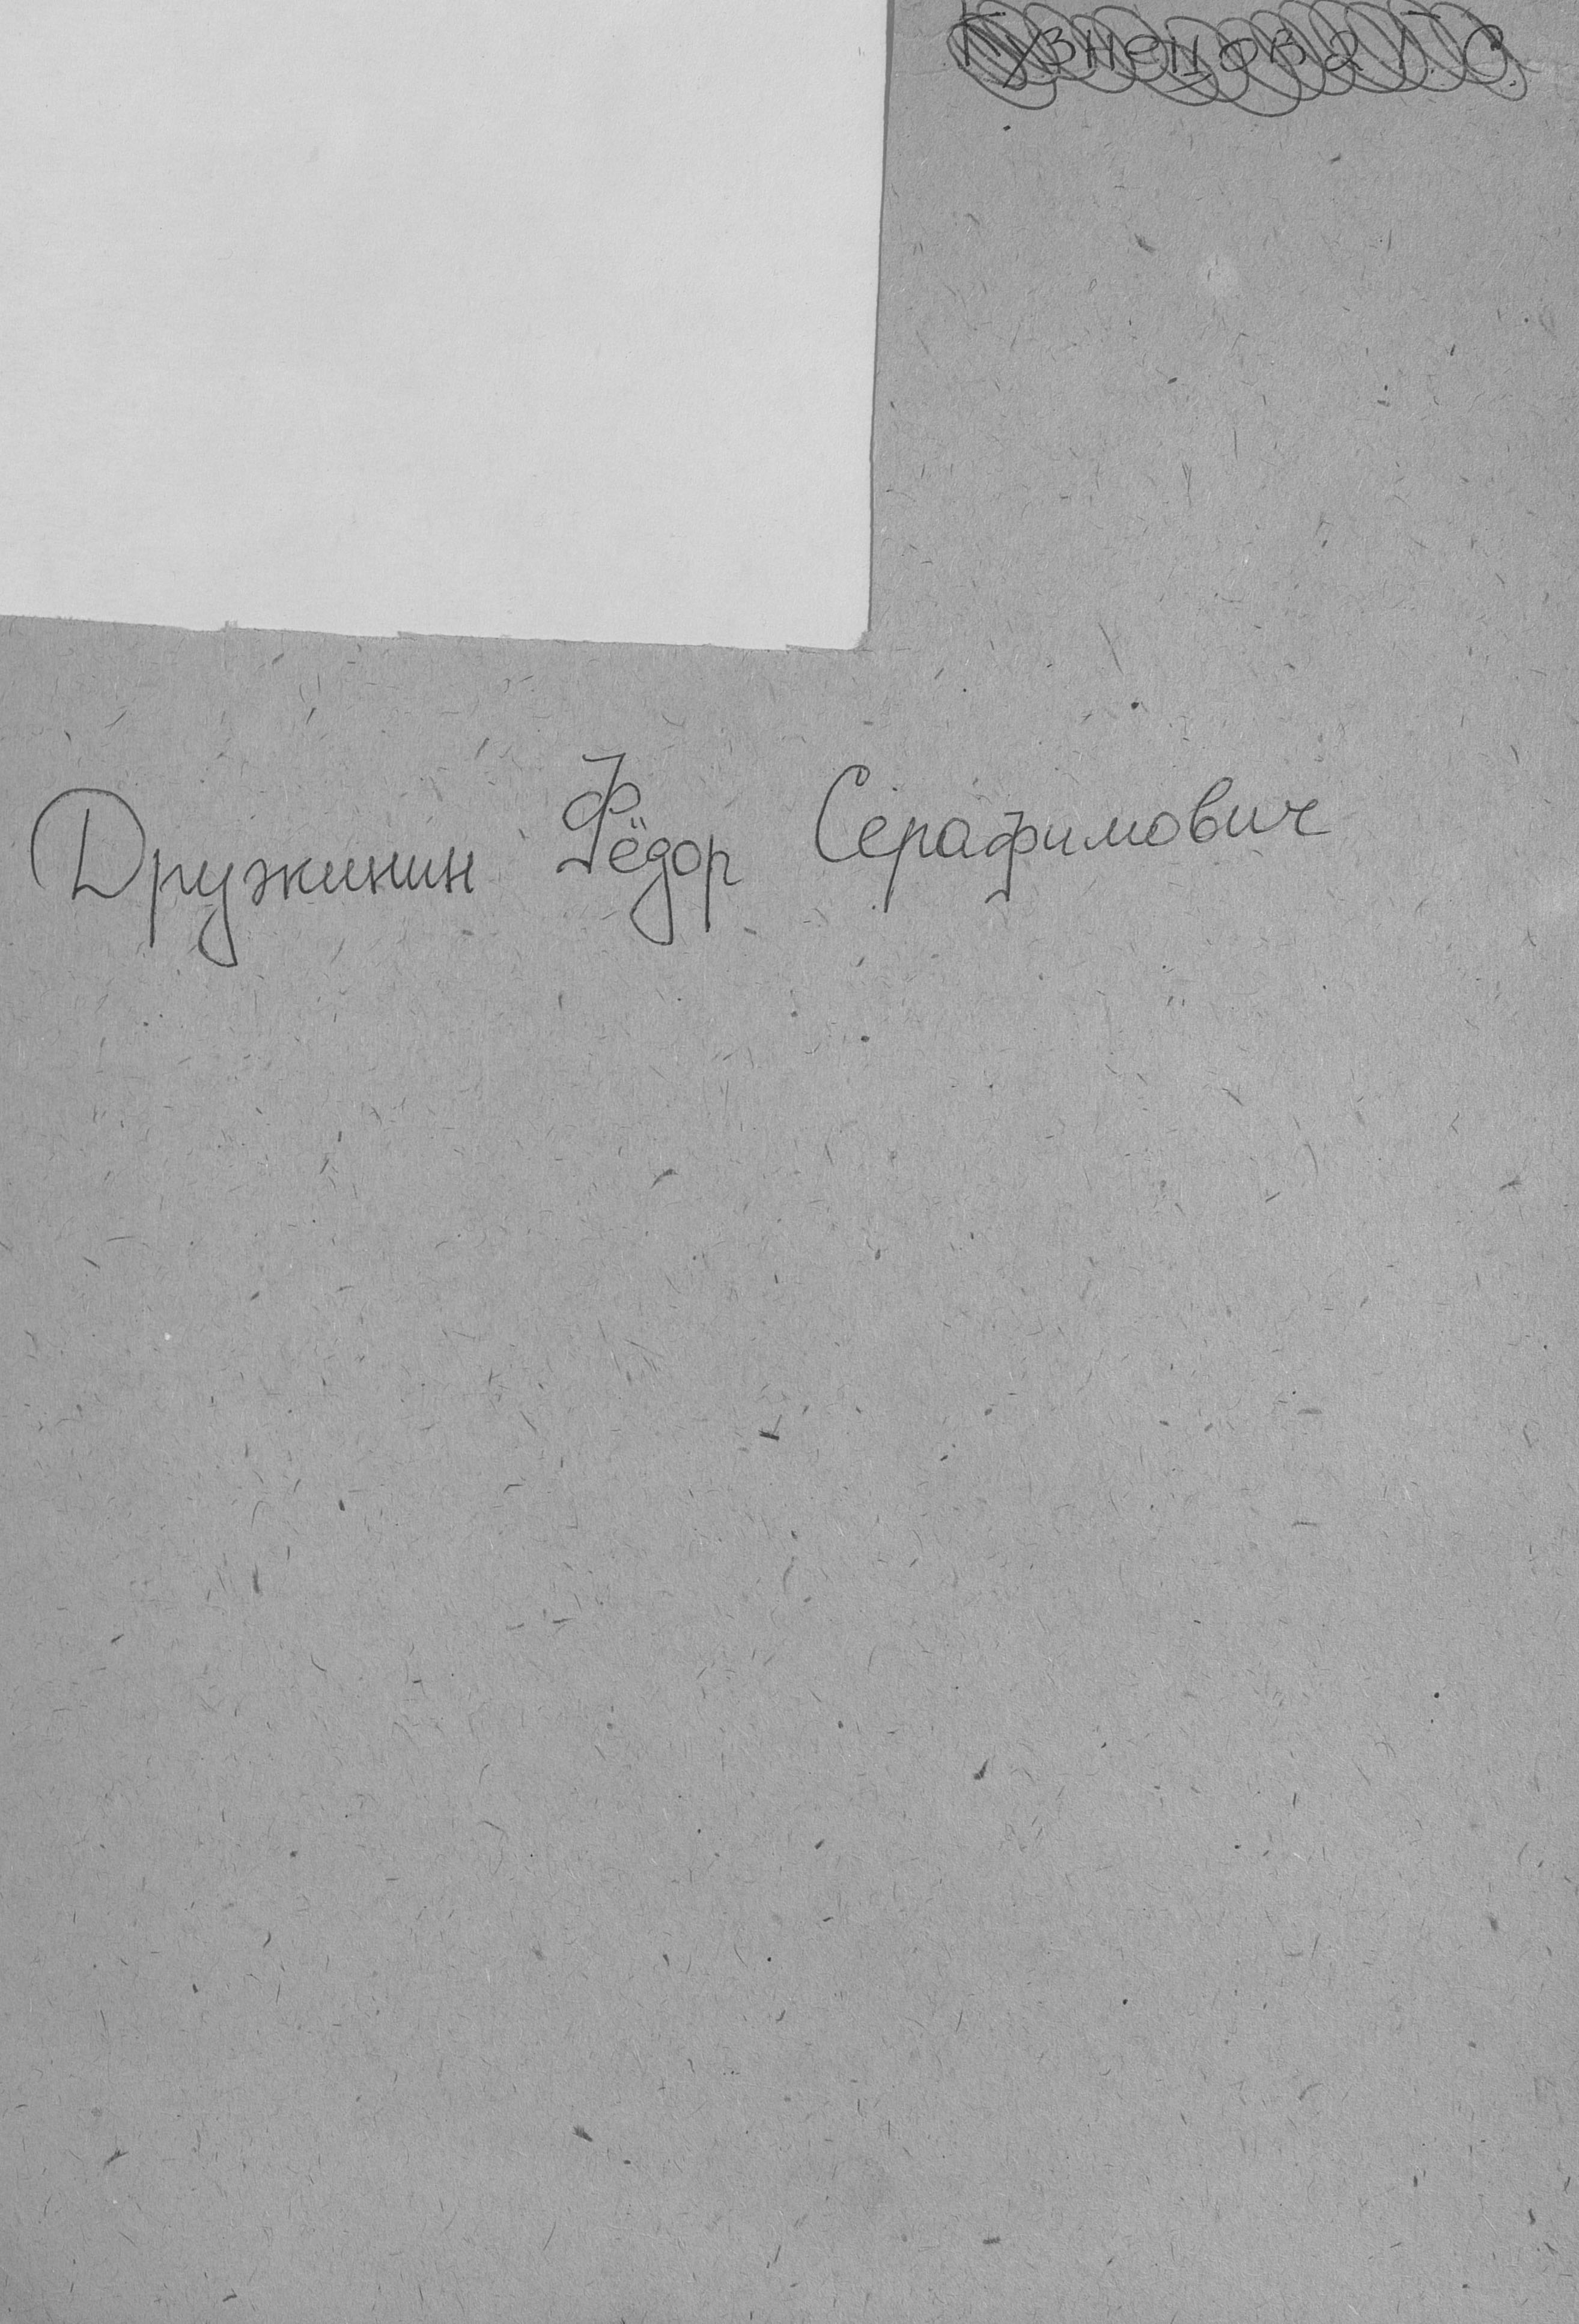 Кузнецова Г. С.
Дружинин Фёдор Серафимович